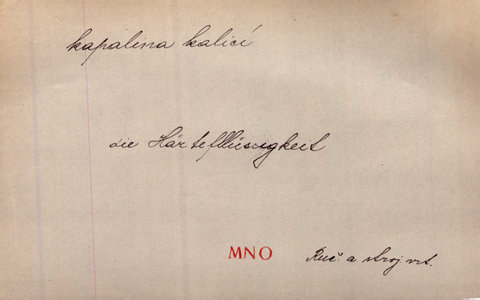 kapalina kalicí
die Härteflüssigkeit
MNO
Ruč. a stroj. vrt.